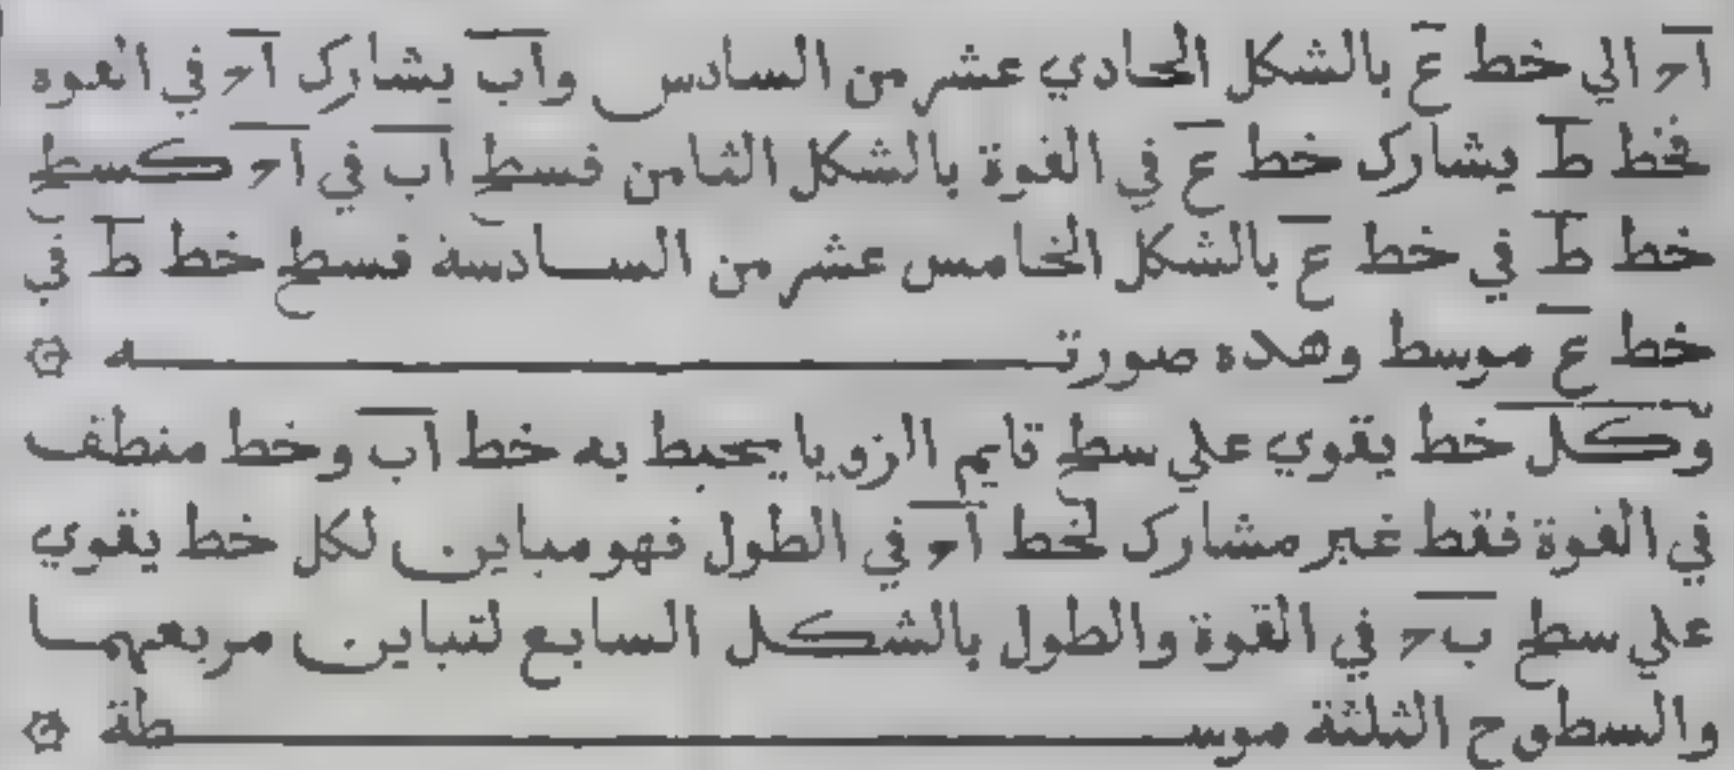 اح الي خط ع بالشكل الحادي عشر من السادس واب يشارك اح في القوه
فخط ط يشارك خط ع في القوة بالشكل الثامن فسطح اب في اح كسطح
خط ط في خط ع بالشكل الخامس عشر من السادسة فسطح خط ط في
خط ع موسط وهذه صورتـــــه
وكل خط يقوي علي سطح قايم الزويا يحيط به خط اب وخط منطف
في القوة فقط غير مشارك لخط اح في الطول فهو مباين لكل خط يقوي
علي سطح بح في القوة والطول بالشكل السابع لتباين مربعيهما
والسطوح الثلثة موســـــطة